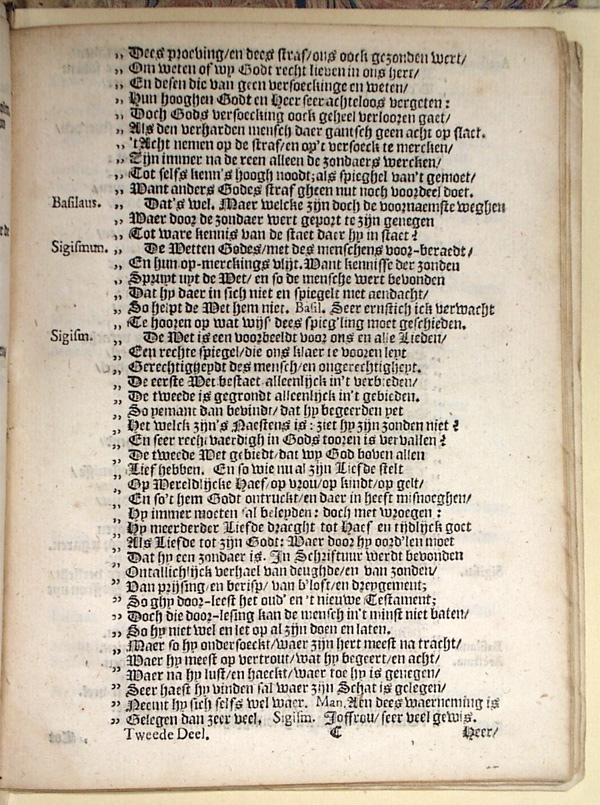 „ Dees proeving/en dees straf/ons oock gezonden wert/
„ Om weten of wy Godt recht lieven in ons hert/
„ En desen die van geen versoeckinge en weten/
„ Hun hooghen Godt en Heer seer achteloos vergeten:
„ Doch Gods versoecking oock geheel verlooren gaet/
„ Als den verharden mensch daer gantsch geen acht op slaet.
„ 't Acht nemen op de straf/en op't versoeck te mercken/
„ Zijn immer na de reen alleen de zondaers wercken/
„ Tot selfs kenn's hoogh noodt; als spieghel van't gemoet/
„ Want anders Godes straf gheen nut noch voordeel doet.
Basilaus. „ Dat's wel. Maer welcke zijn doch de voornaemste weghen
„ Waer door de zondaer wert geport te zijn genegen
„ Tot ware kennis van de staet daer hy in staet?
Sigismun. „ De Wetten Godes/met des menschens voor-beraedt/
„ En hun op-merckings vlijt. Want kennisse der zonden
„ Spruyt uyt de Wet/ en so de mensche wert bevonden
„ Dat hy daer in sich niet en spiegelt met aendacht/
„ So helpt de Wet hem niet. Basil. Seer ernstich ick verwacht
„ Te hooren op wat wijs' dees spieg'ling moet geschieden.
Sigism. „ De Wet is een voorbeeldt voor ons en alle Lieden/
„ Een rechte spiegel/die ons klaer te vooren leyt
„ Gerechtigheydt des mensch/en ongerechtigheyt.
„ De eerste Wet bestaet alleenlijck in't verbieden/
„ De tweede is gegrondt alleenlijck in't gebieden.
„ So yemant dan bevindt/dat hy begeerden yet
„ Het welck zijn's Naestens is: ziet hy zijn zonden niet?
„ En seer rechtvaerdigh in Gods tooren is vervallen?
„ De tweede Wet gebiedt/dat wy God boven allen
„ Lief hebben. En so wie nu al zijn Liefde stelt
„ Op Wereldlijcke Haef/op vrou/op kindt/op gelt/
„ En so't hem Godt ontruckt/en daer in heeft misnoeghen/
„ Hy immer moeten sal beleyden: doch met wroegen:
„ Hy meerderder Liefde draeght tot Haef en tijdlijck goet
„ Als Liefde tot zijn Godt: Waer door hy oord'len moet
„ Dat hy een zondaer is. In Schriftuur werdt bevonden
„ Ontallichlijck verhael van deughde/en van zonden/
„ Van prijsing/en berisp/ van b'loft/en dreygement;
„ So ghy door-leest het oud' en 't nieuwe Testament;
„ Doch die door-lesing kan de mensch in't minst niet baten/
„ So hy niet wel en let op al zijn doen en laten.
„ Maer so hy ondersoeckt/waer zijn hert meest na tracht/
„ Waer hy meest op vertrout/wat hy begeert/en acht/
„ Waer na hy lust/en haeckt/waer toe hy is genegen/
„ Seer haest hy vinden sal waer zijn Schat is gelegen/
„ Neemt hy sich selfs wel waer. Man. Aen dees waerneming is
„ Gelegen dan zeer veel. Sigism. Joffrou/seer veel gewis.
Tweede Deel. C Heer/